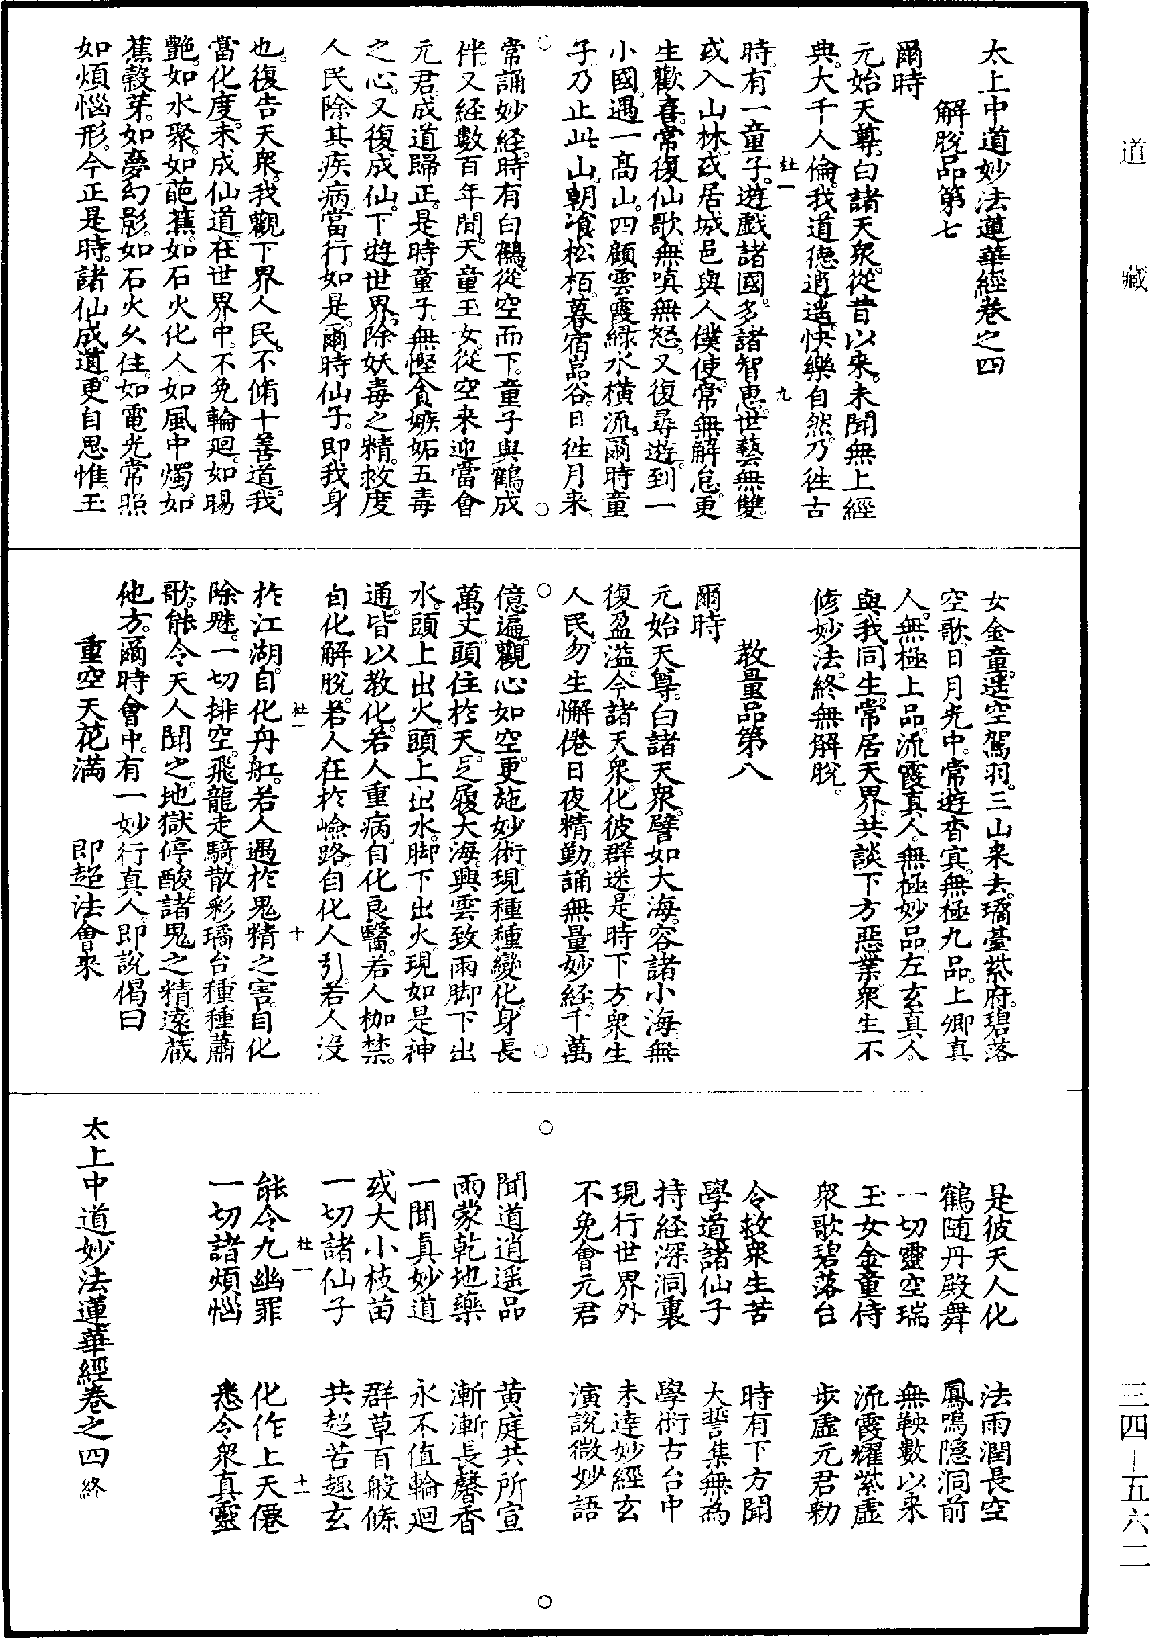 道藏
三四-五六二
太上中道妙法蓮華經卷之四
解脫品第七
爾時
元始天尊。白諸天衆。從昔以來。未聞無上經
典。大千人倫。我道德逍遙。快樂自然。乃徃古
時。有一童子。遊戯諸國。多諸智惠。世藝無雙。
或入山林。或居城邑。與人僕使。常無解怠。更
生歡喜。常復仙歌。無嗔無怒。又復尋遊。到一
小國。遇一高山。四顧雲霞。緑水橫流。爾時童
子。乃止此山。朝飡松栢。暮宿嵓谷。日徃月来。
常誦妙經。時有白鶴。從空而下。童子與鶴成
伴。又經數百年間。天童玉女。從空来迎。當會
元君。成道歸正。是時童子。無慳貪嫉妬五毒
之心。又復成仙。下遊世界。除妖毒之精。救度
人民。除其疾病。當行如是。爾時仙子。即我身
也。復告天衆。我觀下界人民。不脩十善道。我
當化度。未成仙道。在世界中。不免輪廻。如暘
艷。如水聚。如葩蕉。如石火化人。如風中燭。如
蕉穀芽。如夢幻影。如石火久住。如電光常照。
如煩惱形。今正是時。諸仙成道。更自思惟。玉
女金童。遶空駕羽。三山来去。璚臺紫府。碧落
空歌。日月光中。常遊杳㝠。無極九品。上卿真
人。無極上品。流霞真人。無極妙品。左玄真人。
與我同生。常居天界。共談下方惡業衆生。不
修妙法。終無解脫。
教量品第八
爾時
元始天尊。白諸天衆。譬如大海。容諸小海。無
復盈溢。今諸天衆。化彼群迷。是時下方衆生
人民。勿生懈倦。日夜精勤。誦無量妙經。千萬
億遍。觀心如空。更施妙術。現種種變化。身長
萬丈。頭住於天。足履大海。興雲致雨。脚下出
水。頭上出火。頭上出水。脚下出火。現如是神
通。皆以教化。若人重病。自化良醫。若人枷禁。
自化解脫。若人在於嶮路。自化人引。若人沒
於江湖。自化舟舡。若人遇於鬼精之害。自化
除魅。一切排空。飛龍走騎。散彩璚台。種種蕭
歌。能令天人聞之。地獄停酸。諸鬼之精。遠藏
他方。爾時會中。有一妙行真人。即說偈曰
重空天花滿　即超法會衆
是彼天人化　法雨潤長空
鶴随丹殿舞　鳳鳴隐洞前
一切靈空瑞　無鞅數以来
玉女金童侍　流霞耀紫虛
衆歌碧落台　歩虛元君勑
令救衆生苦　時有下方聞
學道諸仙子　大誓集無為
持經深洞裏　學術古台中
現行世界外　未達妙經玄
不免會元君　演說微妙語
聞道逍遥品　黄庭共所宣
雨蒙乾地藥　漸漸長馨香
一聞真妙道　永不值輪迴
或大小枝苗　群草百般條
一切諸仙子　共超苦趣玄
能令九幽罪　化作上天僊
一切諸煩惱　悉令衆真靈
太上中道妙法蓮華經卷之四　終
杜一　九
杜一　十
杜一　十一